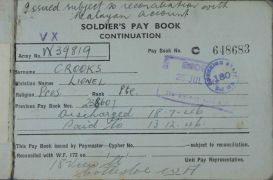 Issued subject to reconciliation with
Malayan Account
SOLDIER'S PAY BOOK
CONTINUATION
VX
Army No. W39819
Pay Book No. C 648683
Surname CROOKS
Christian Name LIONEL
Religion Pres. Rank Pte.
Previous Pay Book Nos.
Discharged 18-7-46
Paid to 13-12-46
This Pay Book issued by Paymaster—Cypher No. subject to reconciliation.
Reconciled with W.F. 172 on
Unit Pay Representative.